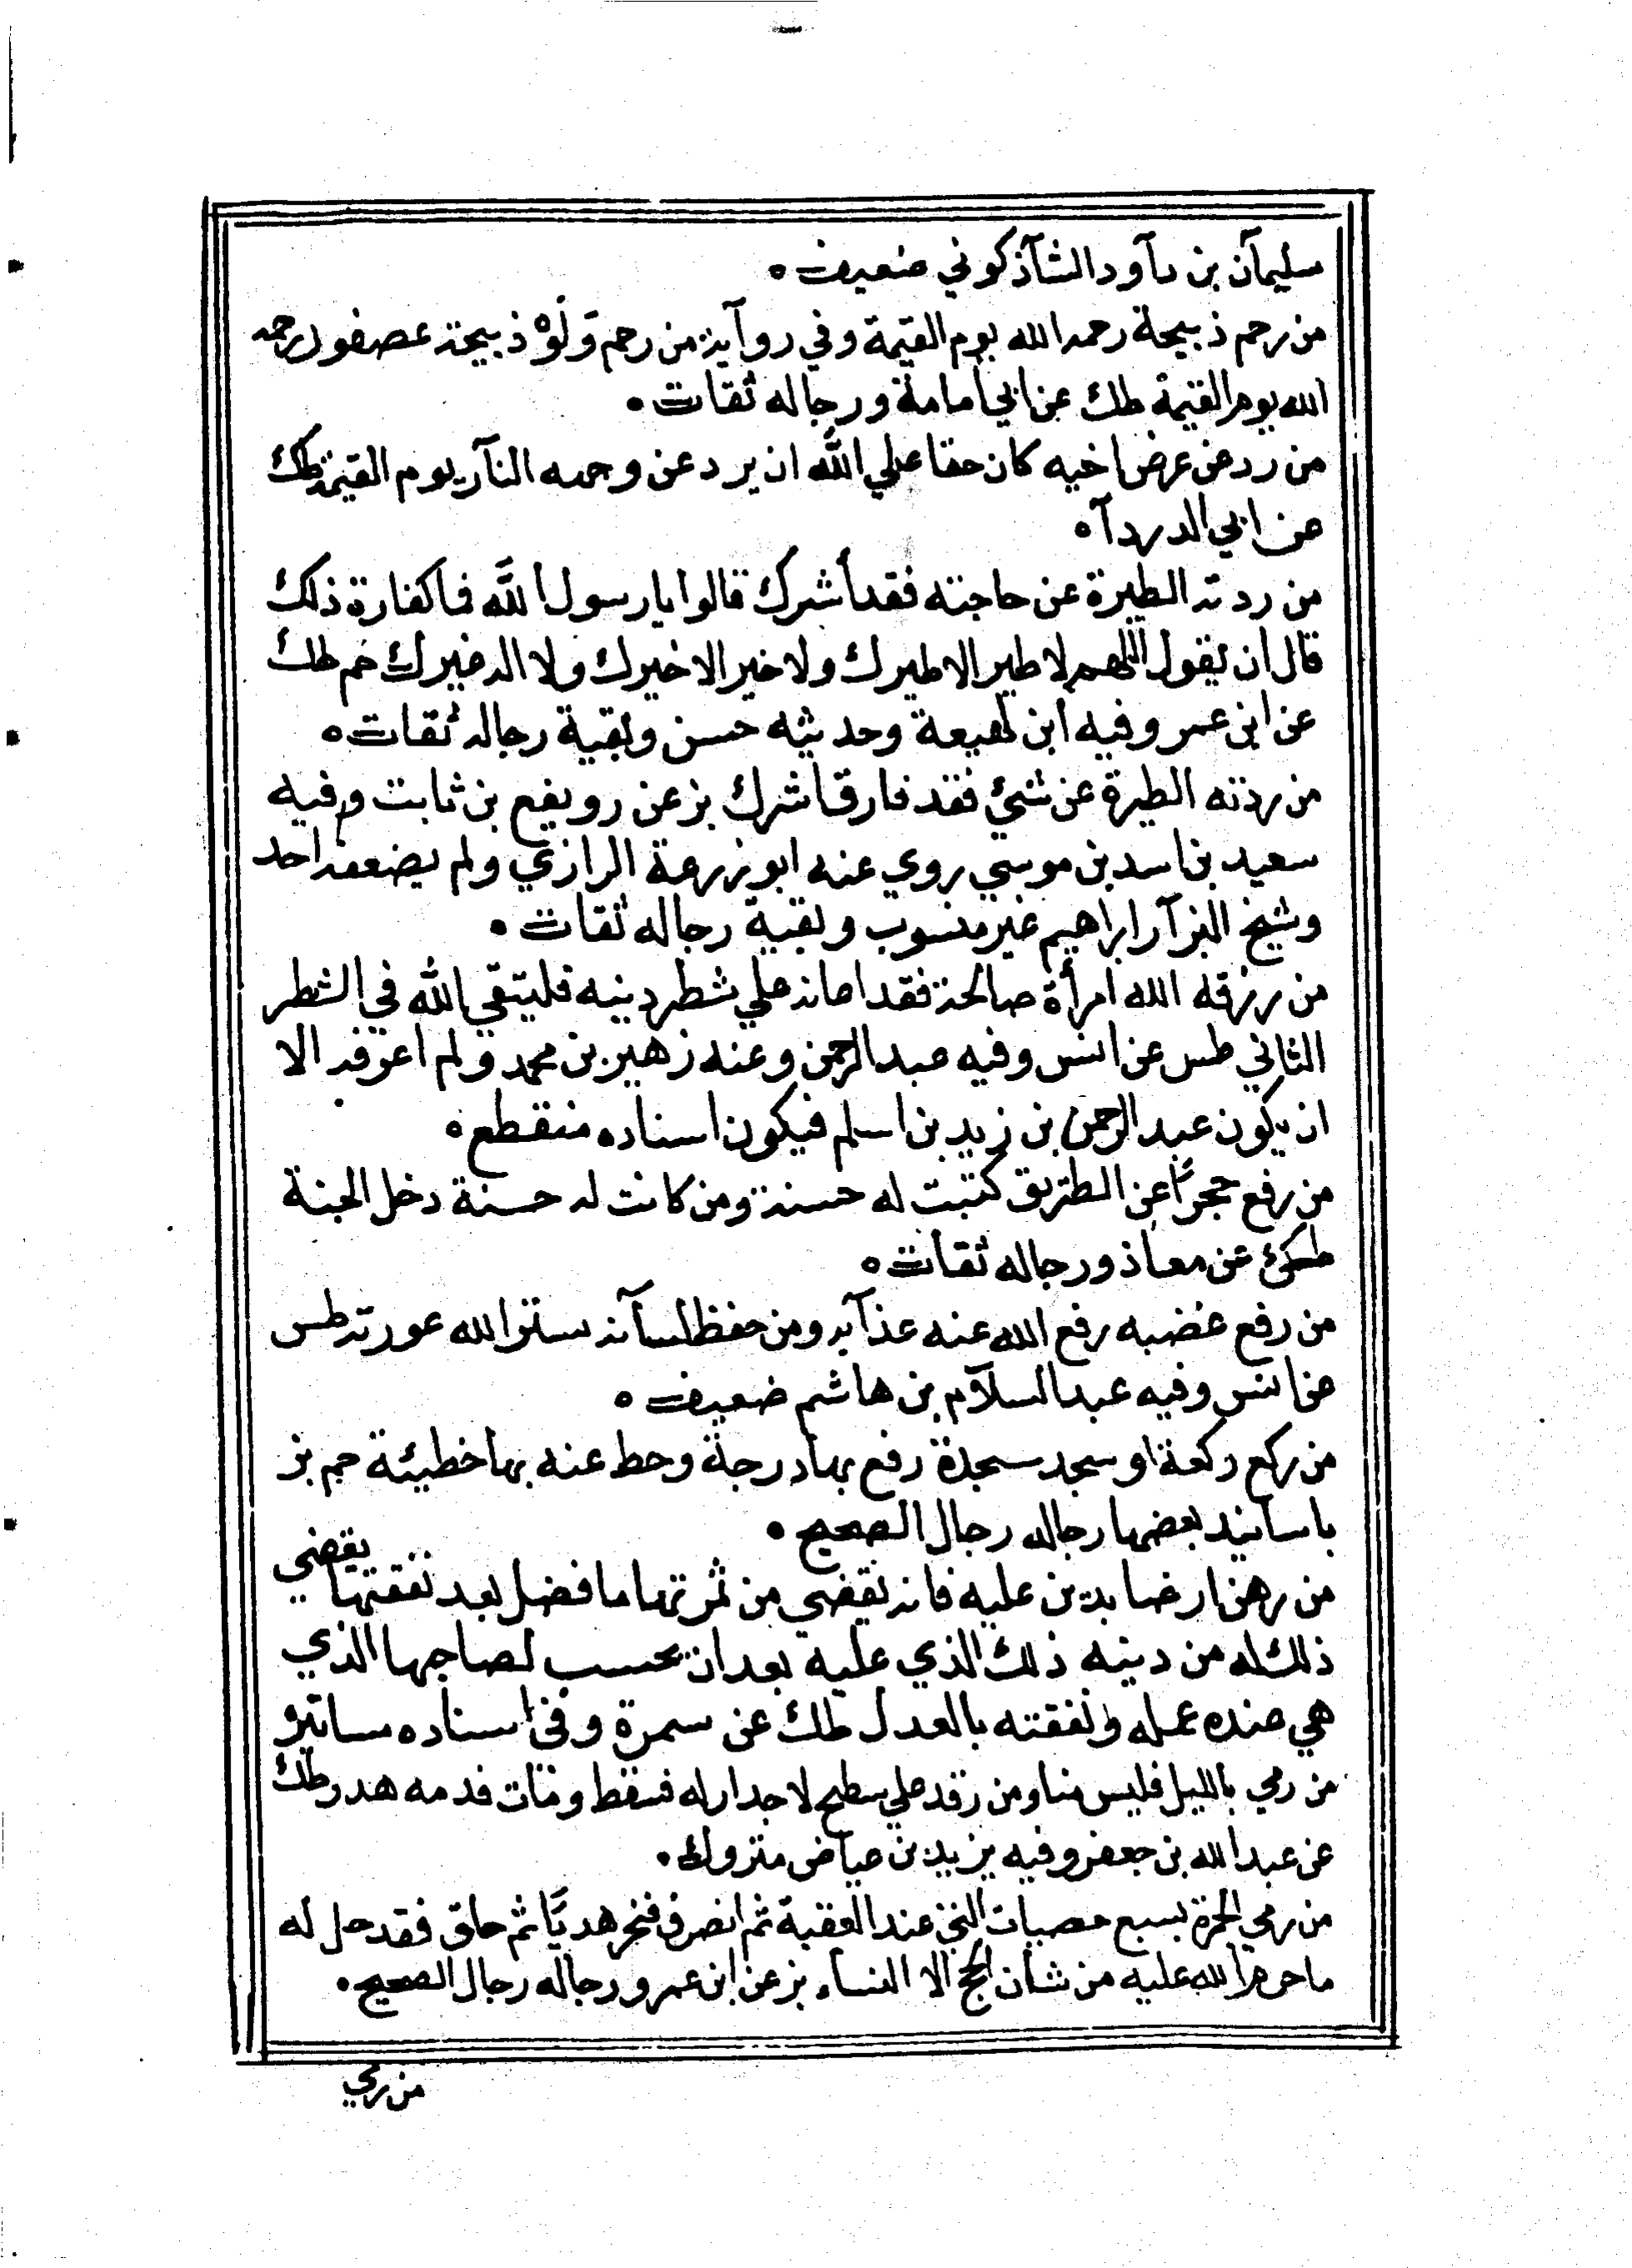 سليمان بن داود الشآذكوني ضعيف ه
من رحم ذبيحة رحمه الله يوم القيمة وفي رواية من رحم وَلَوْ ذبيحة عصفور رحمه
الله يوم القيمة طك عن ابي امامة ورجاله ثقات ه
من رد عن عرض اخيه كان حقا علي الله ان يرد عن وجهه النار يوم القيمة طك
عن ابي الدرداآ ه
من ردته الطيرة عن حاجته فقد أشرك قالوا يا رسول الله فما كفارة ذلك
قال ان يقول اللهم لا طير الا طيرك ولا خير الا خيرك ولا اله غيرك حم طك
عن ابن عمر وفيه ابن لهيعة وحديثه حسن وبقية رجاله ثقات ه
من ردته الطيرة عن شيئ فقد فارق اشرك بز عن رويفع بن ثابت وفيه
سعيد بن اسد بن موسي روي عنه ابو زرعة الرازي ولم يضعفه احد
وشيخ البزآر ابراهيم غير منسوب وبقية رجاله ثقات ه
من رزقه الله امرأة صالحة فقد اعانه علي شطر دينه فليتقي الله في الشطر
الثاني طس عن انس وفيه عبد الرحمن وعنه زهير بن محمد ولم اعرفه الا
ان يكون عبد الرحمن بن زيد بن اسلم فيكون اسناده منقطع ه
من رفع حجرًا عن الطريق كتبت له حسنة ومن كانت له حسنة دخل الجنة
طك عن معاذ ورجاله ثقات ه
من رفع غضبه رفع الله عنه عذآبه ومن حفظ لسآنه ستر الله عورته طس
عن انس وفيه عبد السلآم بن هاشم ضعيف ه
من ركع ركعة او سجد سجدة رفع بها درجة وحط عنه بها خطيئة حم بز
باسانيد بعضها رجاله رجال الصحيح ه
من رهن ارضا بدين عليه فانه يقضي من ثمرتها ما فضل بعد نفقتها يقضي
ذلك له من دينه ذلك الذي عليه بعد ان يحسب لصاحبها الذي
هي عنده عمله ونفقته بالعدل طك عن سمرة وفي اسناده مساتير
من رمي بالليل فليس منا ومن رقد علي سطح لا جدار له فسقط ومات فدمه هدر طك
عن عبد الله بن جعفر وفيه يزيد بن عياض متروك ه
من رمي الجمرة بسبع حصيات التي عند العقبة ثم انصرف فنحر هديًا ثم حلق فقد حل له
ما حرم الله عليه من شأن الحج الا النساء بز عن ابن عمر ورجاله رجال الصحيح ه
من رمي